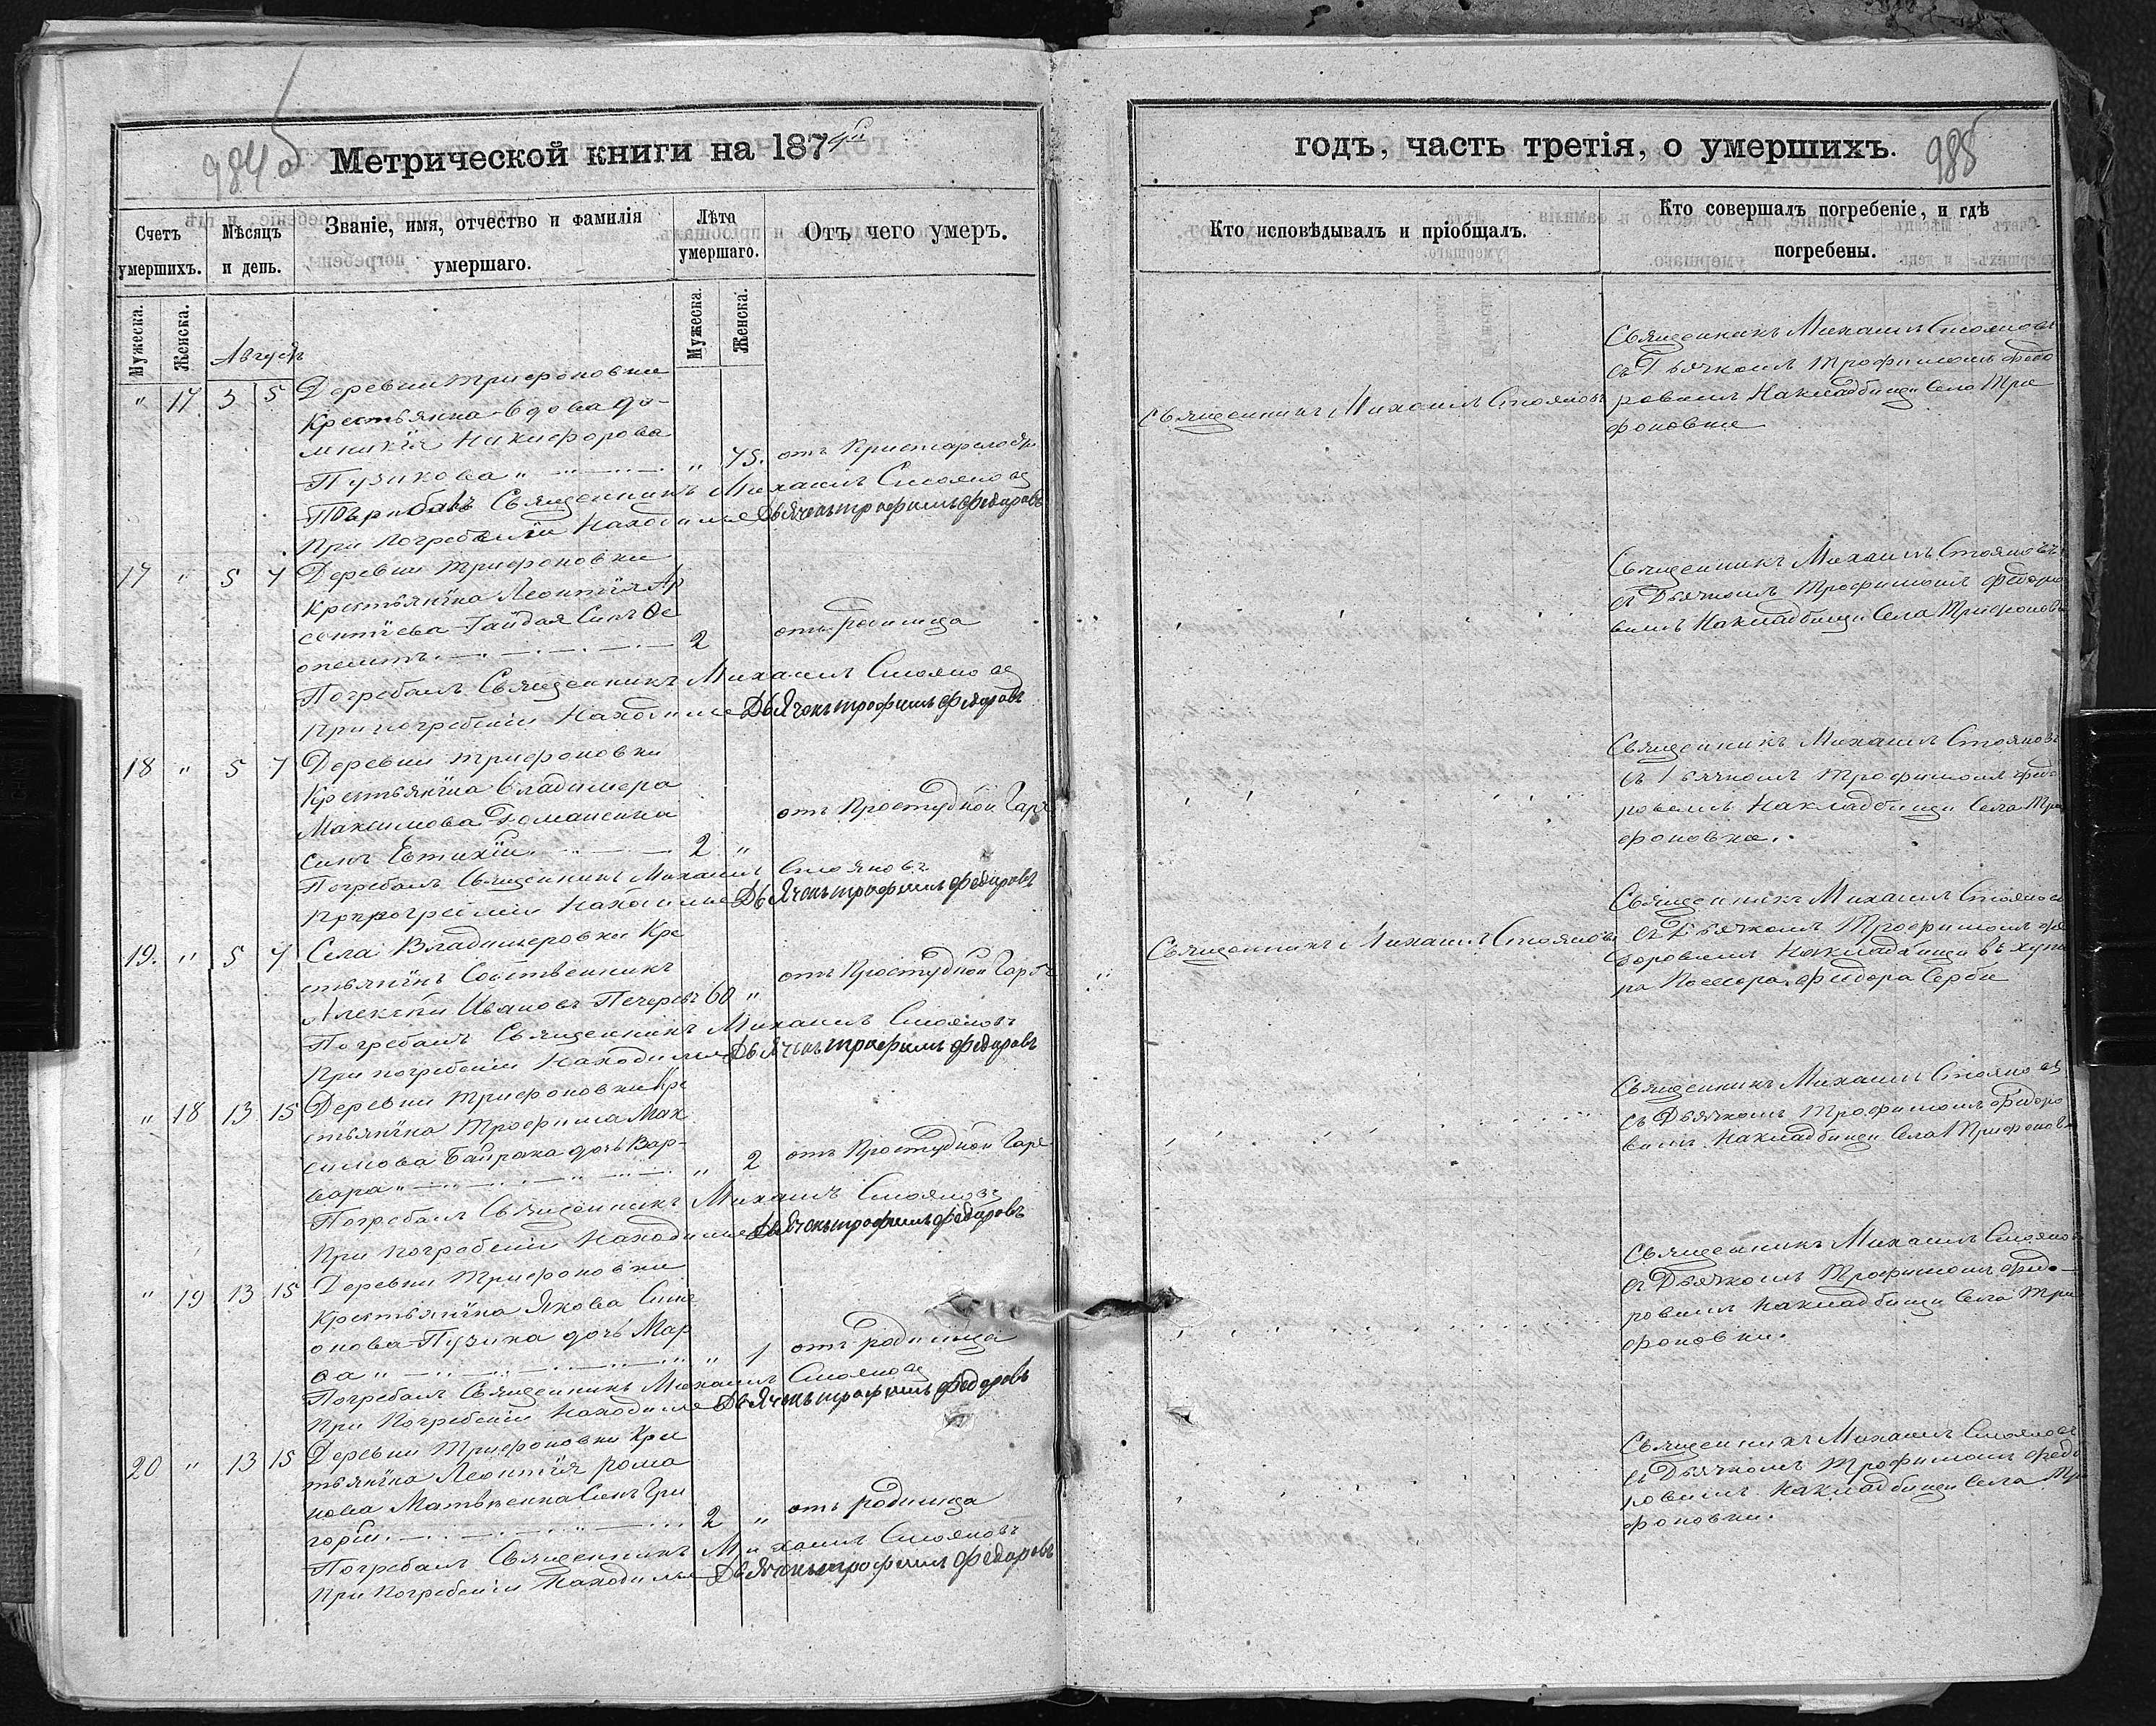 984 об
Метрической книги на 1874й
Счетъ умершихъ.
Мѣсяцъ и день.
Званіе, имя, отчество и фамилія умершаго.
Лѣта умершаго.
Отъ чего умеръ.
Мужеска.
Женска.
Мужеска.
Женска.
Августъ
" 17 3 5 Деревни Трифоновки
Крестьянка вдова До-
мникія Никифорова
Пузикова " " 75. отъ Престарелости
Погребалъ Священникъ Михаилъ Стояновъ
При погребеніи находился Дьячокъ трофимъ федаровъ
17 " 5 7 Деревни Трифоновки
Крестьянина Леонтія Ар
сентіева Гайдая Сынъ Фе
опемптъ 2 отъ родимца
Погребалъ Священникъ Михаилъ Стояновъ
При погребеніи находился Дьячокъ трофимъ федаровъ
18 " 5 7 Деревни Трифоновки
Крестьянина Владимера
Максимова Доманенка
сынъ Евтихій 2 " отъ Простудной Гаряч
Погребалъ Священникъ Михаилъ Стояновъ
При погребеніи находился Дьячокъ трофимъ федаровъ
19. " 5 7 Села Владимеровки Кре
стьянинъ Собственникъ
Алексѣй Ивановъ Печеревъ 60 " отъ Простудной Гаряч
Погребалъ Священникъ Михаилъ Стояновъ
При погребеніи находился Дьячокъ трофимъ федаровъ
" 18 13 15 Деревни Трифоновки Кре
стьянина Трофима Мак
симова Байрака дочь Вар-
вара " " 2 отъ Простудной Гаря
Погребалъ Священникъ Михаилъ Стояновъ
При погребеніи находился Дьячокъ трофимъ федаровъ
" 19 13 15 Деревни Трифоновки
Крестьянина Якова Сими
онова Пузика дочь Мар
ѳа " " 1 отъ родимца
Погребалъ Священникъ Михаилъ Стояновъ
При погребеніи находился Дьячокъ трофимъ федоровъ
20 " 13 15 Деревни Трифоновки Крес
тьянина Леонтія рома
нова Матвѣенка Сынъ Гри
горій. 2 " отъ родимца
Погребалъ Священникъ Михаилъ Стояновъ
При погребеніи находился Дьячокъ трофимъ федаровъ
годъ, часть третія, о умершихъ.
985
Кто исповѣдывалъ и пріобщалъ.
Кто совершалъ погребеніе, и гдѣ погребены.
Священникъ Михаилъ Стояновъ
Священникъ Михаилъ Стояновъ
съ Дьячкомъ Трофимомъ Федо
ровымъ На кладбищи Села Три
фоновки
Священникъ Михаилъ Стояновъ
съ Дьячкомъ Трофимомъ Федоро
вымъ На кладбищи Села Трифоновк
Священникъ Михаилъ Стояновъ
съ Дьячкомъ Трофимомъ Федо
ровымъ На кладбищи Села Три
фоновки.
Священникъ Михаилъ Стояновъ
Священникъ Михаилъ Стояновъ
съ Дьячкомъ Трофимомъ Фе
доровымъ На кладбищи въ хуто
ра Посесора Федора Серби
Священникъ Михаилъ Стояновъ
съ Дьячкомъ Трофимомъ Федоро
вымъ На кладбищи Села Трифоновк
Священникъ Михаилъ Стоянов
съ Дьячкомъ Трофимомъ Федо-
ровымъ На кладбищи Села Три
фоновки.
Священникъ Михаилъ Стояновъ
съ Дьячкомъ Трофимомъ Федо
ровымъ На кладбищи Села Три
фоновки.